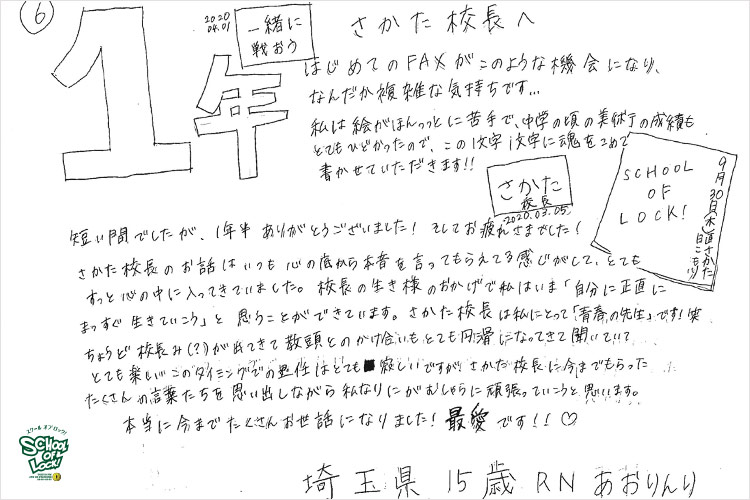 ⑥
1年
2020
04.01
一緒に
戦おう
さかた校長へ
はじめてのFAXがこのような機会になり、
なんだか複雑な気持ちです…
私は絵がほんっっとに苦手で、中学の頃の美術の成績も
とてもひどかったので、この1文字1文字に魂をこめて
書かせていただきます!!
さかた
校長
2020.03.05
SCHOOL
OF
LOCK!
9月30日(水)
短い間でしたが、1年半ありがとうございました!そしてお疲れさまでした!
さかた校長のお話はいつも心の底から本音を言ってもらえてる感じがして、とても
すっと心の中に入ってきていました。校長の生き様のおかげで私はいま「自分に正直に
まっすぐ生きていこう」と思うことができています。さかた校長は私にとって「青春の先生」です!笑
ちょうど校長み(?)が出てきて教頭とのかけ合いもとても円滑になってきて聞いていて
とても楽しいこのタイミングでの退任はとても寂しいですがさかた校長に今までもらった
たくさんの言葉たちを思い出しながら私なりにがむしゃらに頑張っていこうと思います。
本当に今までたくさんお世話になりました!最愛です!!♡
スクールオブロック!
SCHOOL
OF
LOCK!
埼玉県 15歳 RN あおりんり